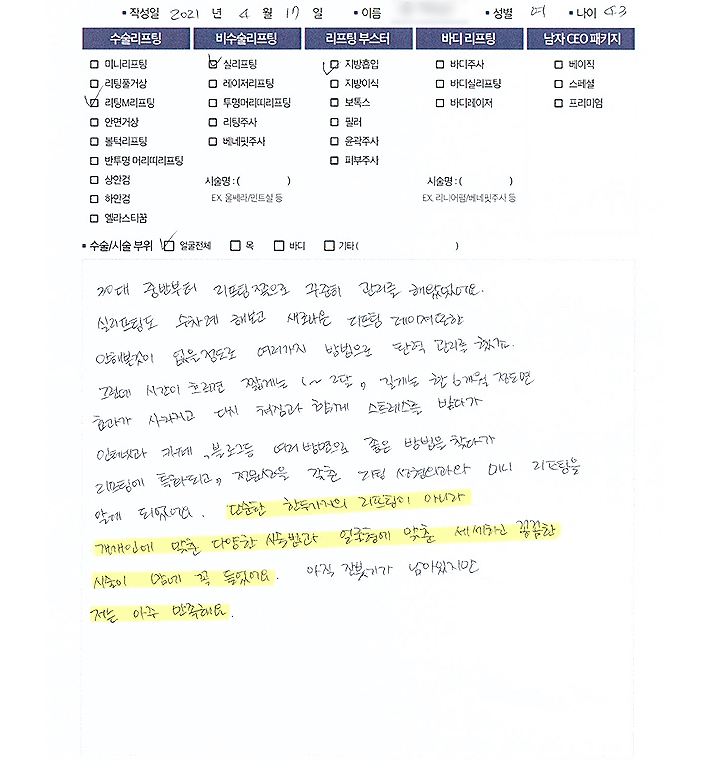 ▪ 작성일 2021 년 4 월 17 일 ▪ 이름 ▪ 성별 여 ▪ 나이 43
수술리프팅 비수술리프팅 리프팅 부스터 바디 리프팅 남자 CEO 패키지
미니리프팅 실리프팅 지방흡입 바디주사 베이직
리팅풀거상 레이저리프팅 지방이식 바디실리프팅 스페셜
리팅M리프팅 투명머리띠리프팅 보톡스 바디레이저 프리미엄
안면거상 리팅주사 필러
볼턱리프팅 베네핏주사 윤곽주사
반투명 머리띠리프팅 피부주사
상안검 시술명 : ( ) 시술명 : ( )
하안검 EX. 울쎄라/민트실 등 EX. 리니어펌/베네핏주사 등
엘라스티꿈
▪ 수술/시술 부위 얼굴전체 목 바디 기타 ( )
30대 중반부터 리프팅쪽으로 꾸준히 관리를 해왔었어요.
실리프팅도 수차례 해보고 새로나온 리프팅 레이저또한
안해본것이 없을정도로 여러가지 방법으로 탄력 관리를 했구요.
그런데 시간이 흐르면 짧게는 1~2달, 길게는 한 6개월 정도면
효과가 사라지고 다시 쳐짐과 함께 스트레스를 받다가
인터넷과 카페, 블로그등 여러 방면으로 좋은 방법을 찾다가
리프팅에 특화되고, 전문성을 갖춘 리팅 성형외과와 미니 리프팅을
알게 되었어요. 단순한 한두가지의 리프팅이 아니라
개개인에 맞춘 다양한 시술법과 얼굴형에 맞춘 세세하고 꼼꼼한
시술이 맘에 꼭 들었어요. 아직 잔붓기가 남아있지만
저는 아주 만족해요.